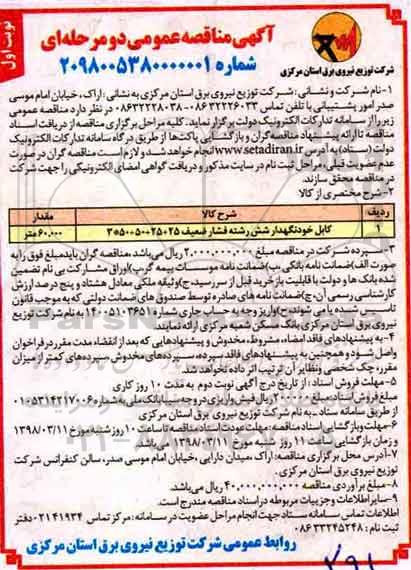 نوبت اول
آگهی مناقصه عمومی دو مرحله‌ای
شماره ۲۰۹۸۰۰۵۳۸۰۰۰۰۰۰۱
شرکت توزیع نیروی برق استان مرکزی
۱-نام شرکت و نشانی: شرکت توزیع نیروی برق استان مرکزی به نشانی: اراک، خیابان امام موسی
صدر امور پشتیبانی با تلفن تماس ۰۸۶۳۲۲۲۶۰۳۳ - ۰۸۶۳۲۲۲۸۰۳۸ در نظر دارد مناقصه عمومی
زیر را از سامانه تدارکات الکترونیک دولت برگزار نماید. کلیه مراحل برگزاری مناقصه از دریافت اسناد
مناقصه تا ارائه پیشنهاد مناقصه‌گران و بازگشایی پاکت‌ها از طریق درگاه سامانه تدارکات الکترونیک
دولت (ستاد) به آدرس www.setadiran.ir انجام خواهد شد و لازم است مناقصه گران در صورت
عدم عضویت قبلی، مراحل ثبت نام در سایت مذکور و دریافت گواهی امضای الکترونیکی را جهت شرکت
در مناقصه محقق سازند.
۲- شرح مختصری از کالا
ردیف شرح کالا مقدار
۱ کابل خودنگهدار شش رشته فشار ضعیف ۲۵+۲۵+۵۰+۵۰*۳ ۶۰,۰۰۰ متر
۳-سپرده شرکت در مناقصه مبلغ ۲,۰۰۰,۰۰۰,۰۰۰ ریال می‌باشد، مناقصه گران باید مبلغ فوق را به
صورت الف) ضمانت نامه بانکی، ب) ضمانت نامه موسسات بیمه گر، پ) اوراق مشارکت بی نام تضمین
شده بانک ها و دولت با قابلیت باز خرید قبل از سررسید، ج) وثیقه ملکی معادل هشتاد و پنج درصد ارزش
کارشناسی رسمی آن، چ) ضمانت نامه های صادره توسط صندوق های ضمانت دولتی که به موجب قانون
تاسیس شده یا می شوند، ح) واریز وجه به حساب جاری شماره ۱۴۰۰۵۱۰۳۶۵۱ به نام شرکت توزیع
نیروی برق استان مرکزی بانک مسکن شعبه مرکزی ارائه نمایند.
۴-به پیشنهادهای فاقد امضاء، مشروط، مخدوش و پیشنهادهایی که بعد از انقضاء مدت مقرر در فراخوان
واصل شود و همچنین به پیشنهادهای فاقد سپرده، سپرده‌های مخدوش، سپرده‌های کمتر از میزان
مقرر، چک شخصی و نظایر آن ترتیب اثر داده نخواهد شد.
۵-مهلت فروش اسناد: از تاریخ درج آگهی نوبت دوم به مدت ۱۰ روز کاری
از طریق سامانه ستاد به نام شرکت توزیع نیروی برق استان مرکزی
۶-مهلت و بازگشایی اسناد مناقصه: مهلت عودت اسناد مناقصه تا ساعت ۱۰ روز شنبه مورخ ۱۳۹۸/۰۳/۱۱
و زمان بازگشایی ساعت ۱۱ روز شنبه مورخ ۱۳۹۸/۰۳/۱۱ می باشد
۷-آدرس محل برگزاری مناقصه: اراک، میدان دارایی، خیابان امام موسی صدر، سالن کنفرانس شرکت
توزیع نیروی برق استان مرکزی.
۸-مبلغ برآوردی مناقصه ۴۰,۰۰۰,۰۰۰,۰۰۰ ریال می‌باشد.
۹-سایر اطلاعات و جزییات مربوطه در اسناد مناقصه مندرج است.
اطلاعات تماس سامانه ستاد جهت انجام مراحل عضویت در سامانه: مرکز تماس ۰۲۱۴۱۹۳۴ دفتر
ثبت نام: ۰۸۶۳۳۲۴۵۲۴۸
روابط عمومی شرکت توزیع نیروی برق استان مرکزی
۲۹۱